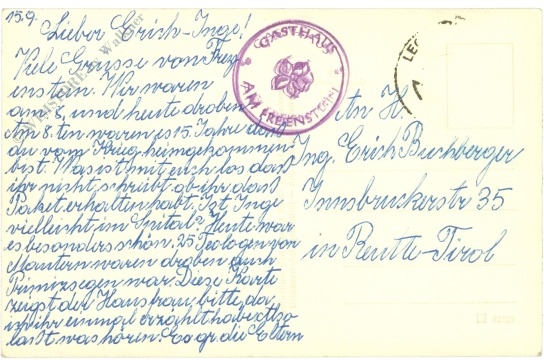 15.9.
Lieber Erich-Inge!
Viele Grüsse von Frey
enstein. Wir waren
am 8. und heute droben
Am 8. ten waren es 15 Jahre dass
du vom Krieg heimgekommen
bist. Was ist mit euch los dass
ihr nicht schreibt ob ihr das
Paket erhalten habt. Ist Inge
vielleicht im Spital? Heute war
es besonders schön. 25 Teologen von
Mautern waren droben auch
Primizsegen war. Diese Karte
zeigst der Hausfrau, bitte, da
ich ihr einmal erzählt habe. Also
lasst was hören. Es gr. die Eltern
GASTHAUS
AM FREIENSTEIN
LEO
An H.
Ing. Erich Buchberger
Innsbruckerstr 35
in Reutte-Tirol